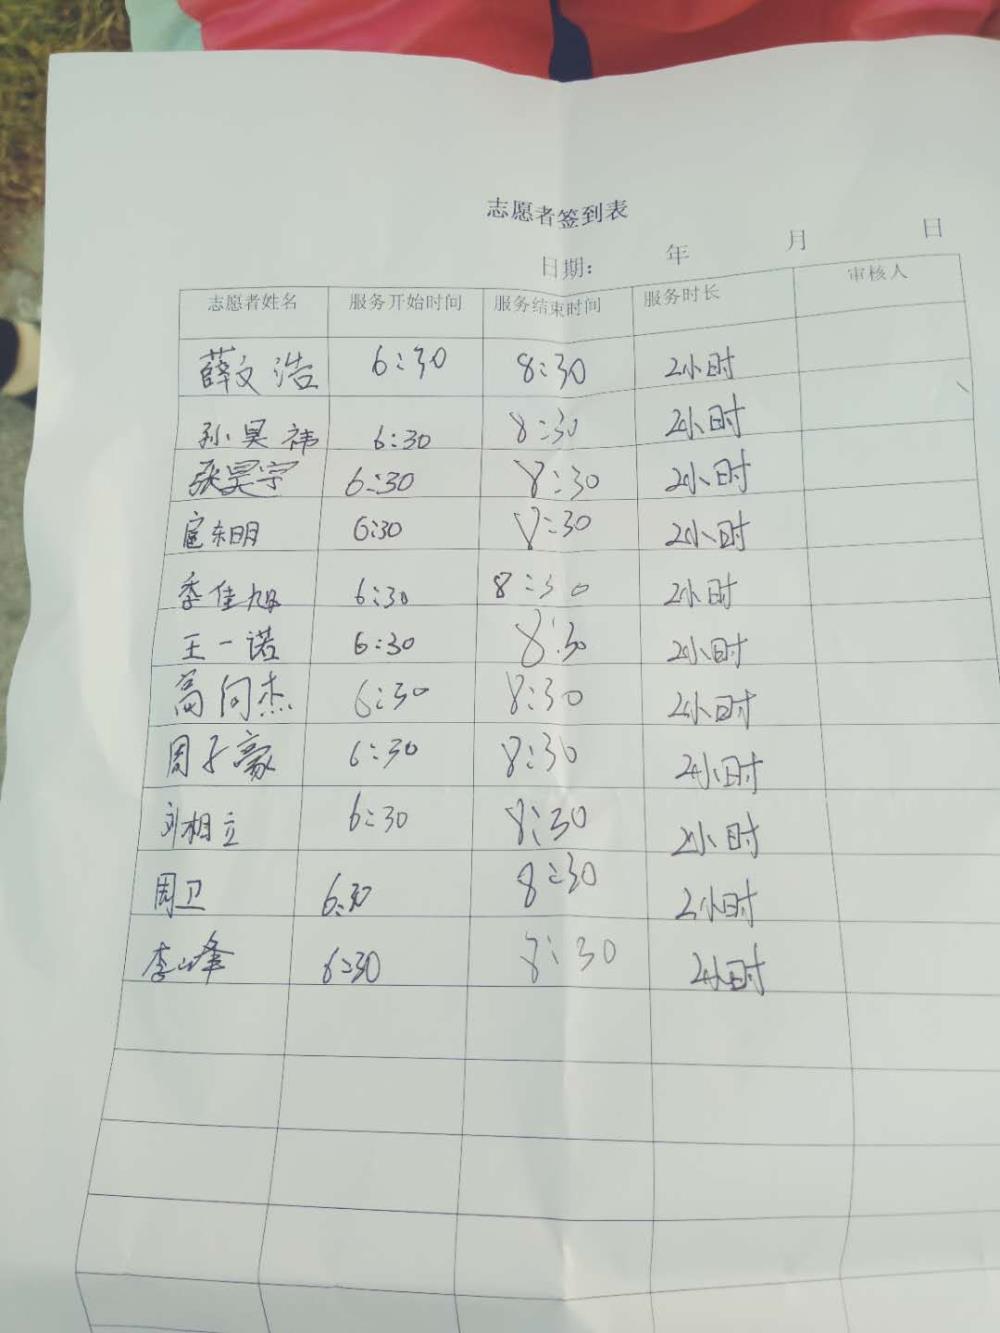 志愿者签到表
日期： 年 月 日
志愿者姓名 服务开始时间 服务结束时间 服务时长 审核人
薛文浩 6:30 8:30 2小时
孙昊祎 6:30 8:30 2小时
张昊宇 6:30 8:30 2小时
扈东明 6:30 8:30 2小时
季佳旭 6:30 8:30 2小时
王一诺 6:30 8:30 2小时
高问杰 6:30 8:30 2小时
周子豪 6:30 8:30 2小时
刘相立 6:30 8:30 2小时
周卫 6:30 8:30 2小时
李峰 6:30 8:30 2小时